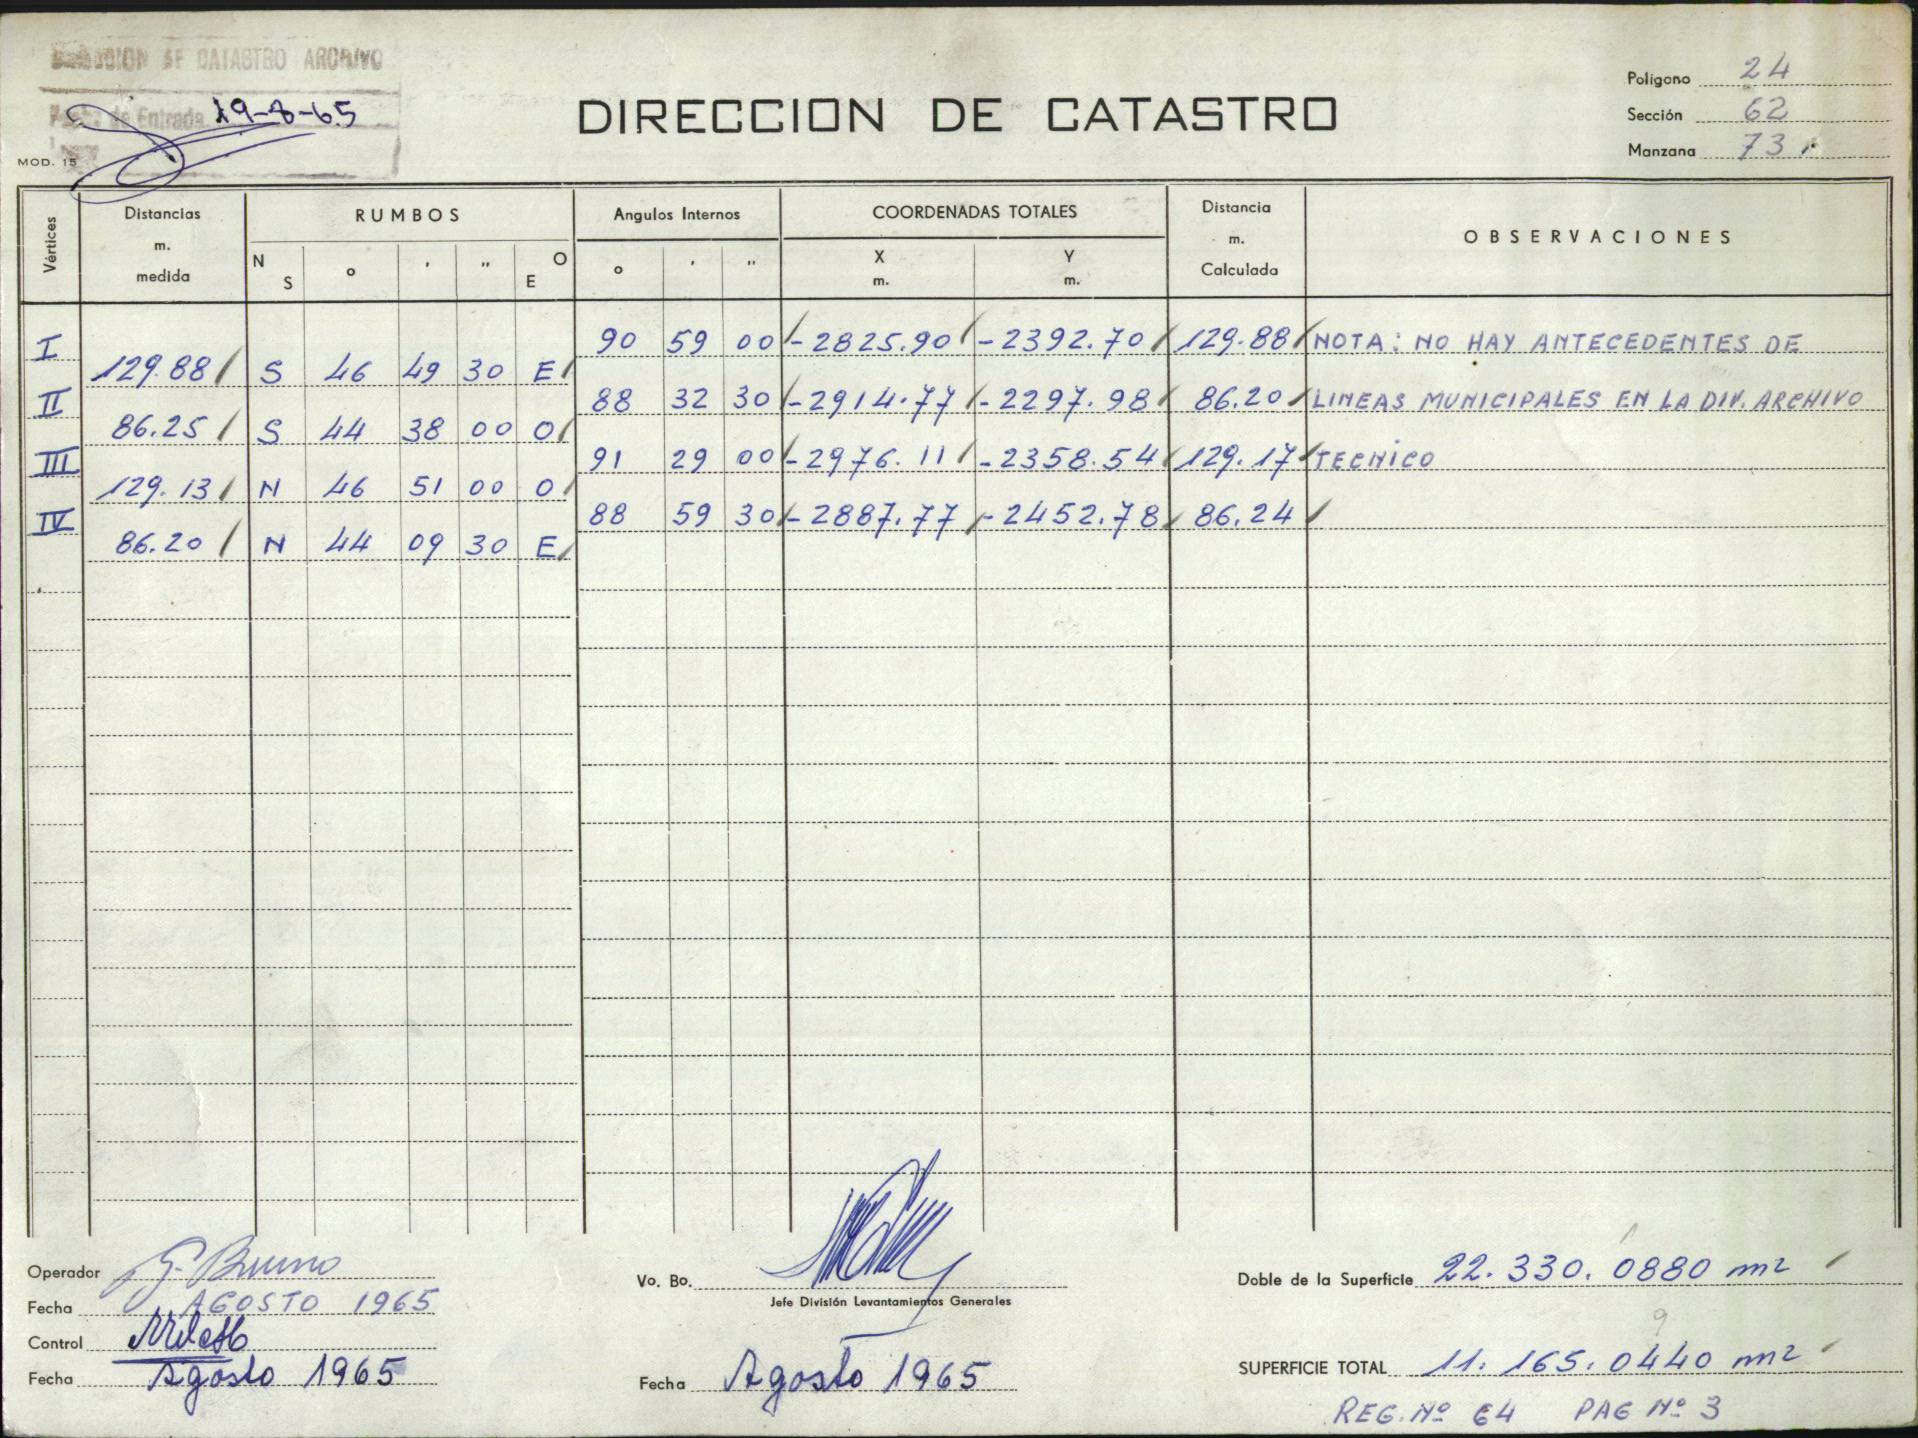 DIRECCION DE CATASTRO ARCHIVO
Fecha de Entrada 19-8-65
MOD. 15
DIRECCION DE CATASTRO
Polígono 24
Sección 62
Manzana 73
Vértices Distancias m. medida RUMBOS Angulos Internos COORDENADAS TOTALES Distancia m. Calculada OBSERVACIONES
N S o ' " O E o ' " X m. Y m.
I 90 59 00 -2825.90 -2392.70 129.88 NOTA: NO HAY ANTECEDENTES DE
129.88 S 46 49 30 E
II 88 32 30 -2914.77 -2297.98 86.20 LINEAS MUNICIPALES EN LA DIV. ARCHIVO
86.25 S 44 38 00 O
III 91 29 00 -2976.11 -2358.54 129.17 TECNICO
129.13 N 46 51 00 O
IV 88 59 30 -2887.77 -2452.78 86.24
86.20 N 44 09 30 E
Operador G. Bruno
Fecha AGOSTO 1965
Control
Fecha Agosto 1965
Vo. Bo.
Jefe División Levantamientos Generales
Fecha Agosto 1965
Doble de la Superficie 22.330.0880 m2
9
SUPERFICIE TOTAL 11.165.0440 m2
REG. Nº 64 PAG Nº 3